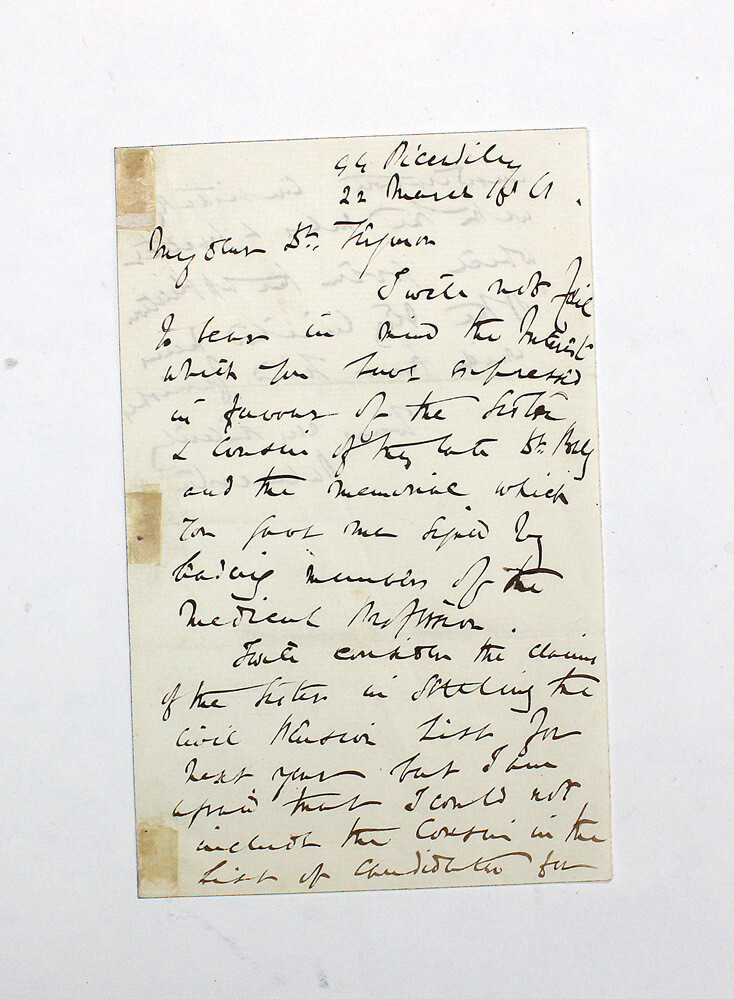 94 Piccadilly
22 March 1861.
My dear Dr. Ferguson
I will not fail
to bear in mind the Interest
which you have expressed
in favour of the Sister
& Cousin of the late Dr. Baly
and the memorial which
You gave me signed by
leading members of the
Medical Profession
I will consider the claims
of the Sister in settling the
Civil Pension List for
next year but I am
afraid that I could not
include the Cousin in the
List of Candidates for